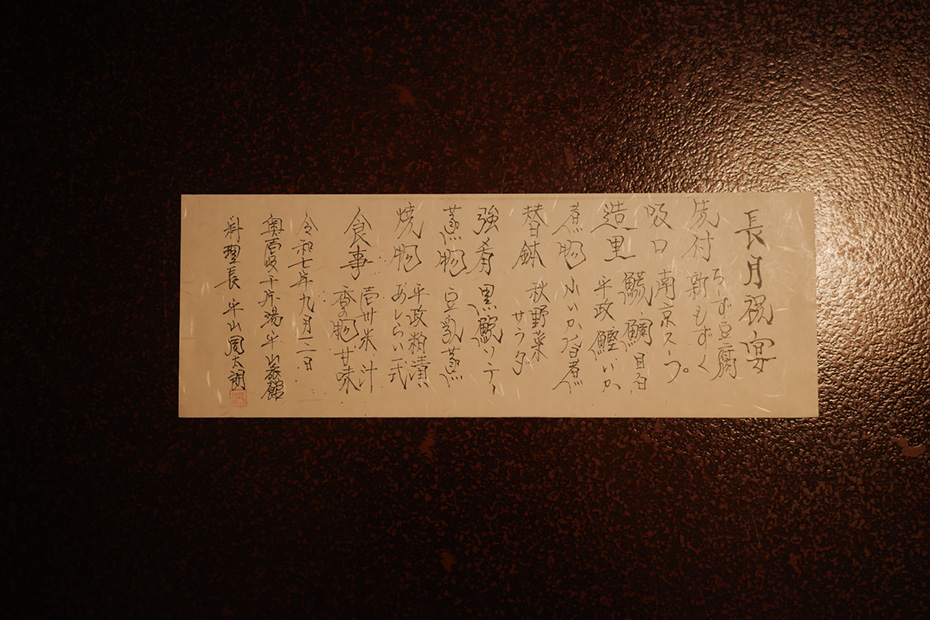 長月祝宴
先付 うず豆腐
新もずく
吸口 南京スープ
造里 鯛 目白
平政 鰹 いか
煮物 小いか旨煮
替鉢 秋野菜
サラダ
強肴 黒鯥ソテー
蒸物 豆乳蒸
焼物 平政粕漬
あしらい一式
食事 壱州米 汁
香の物 甘味
令和七年九月二日
湯
料理長 平山周太朗